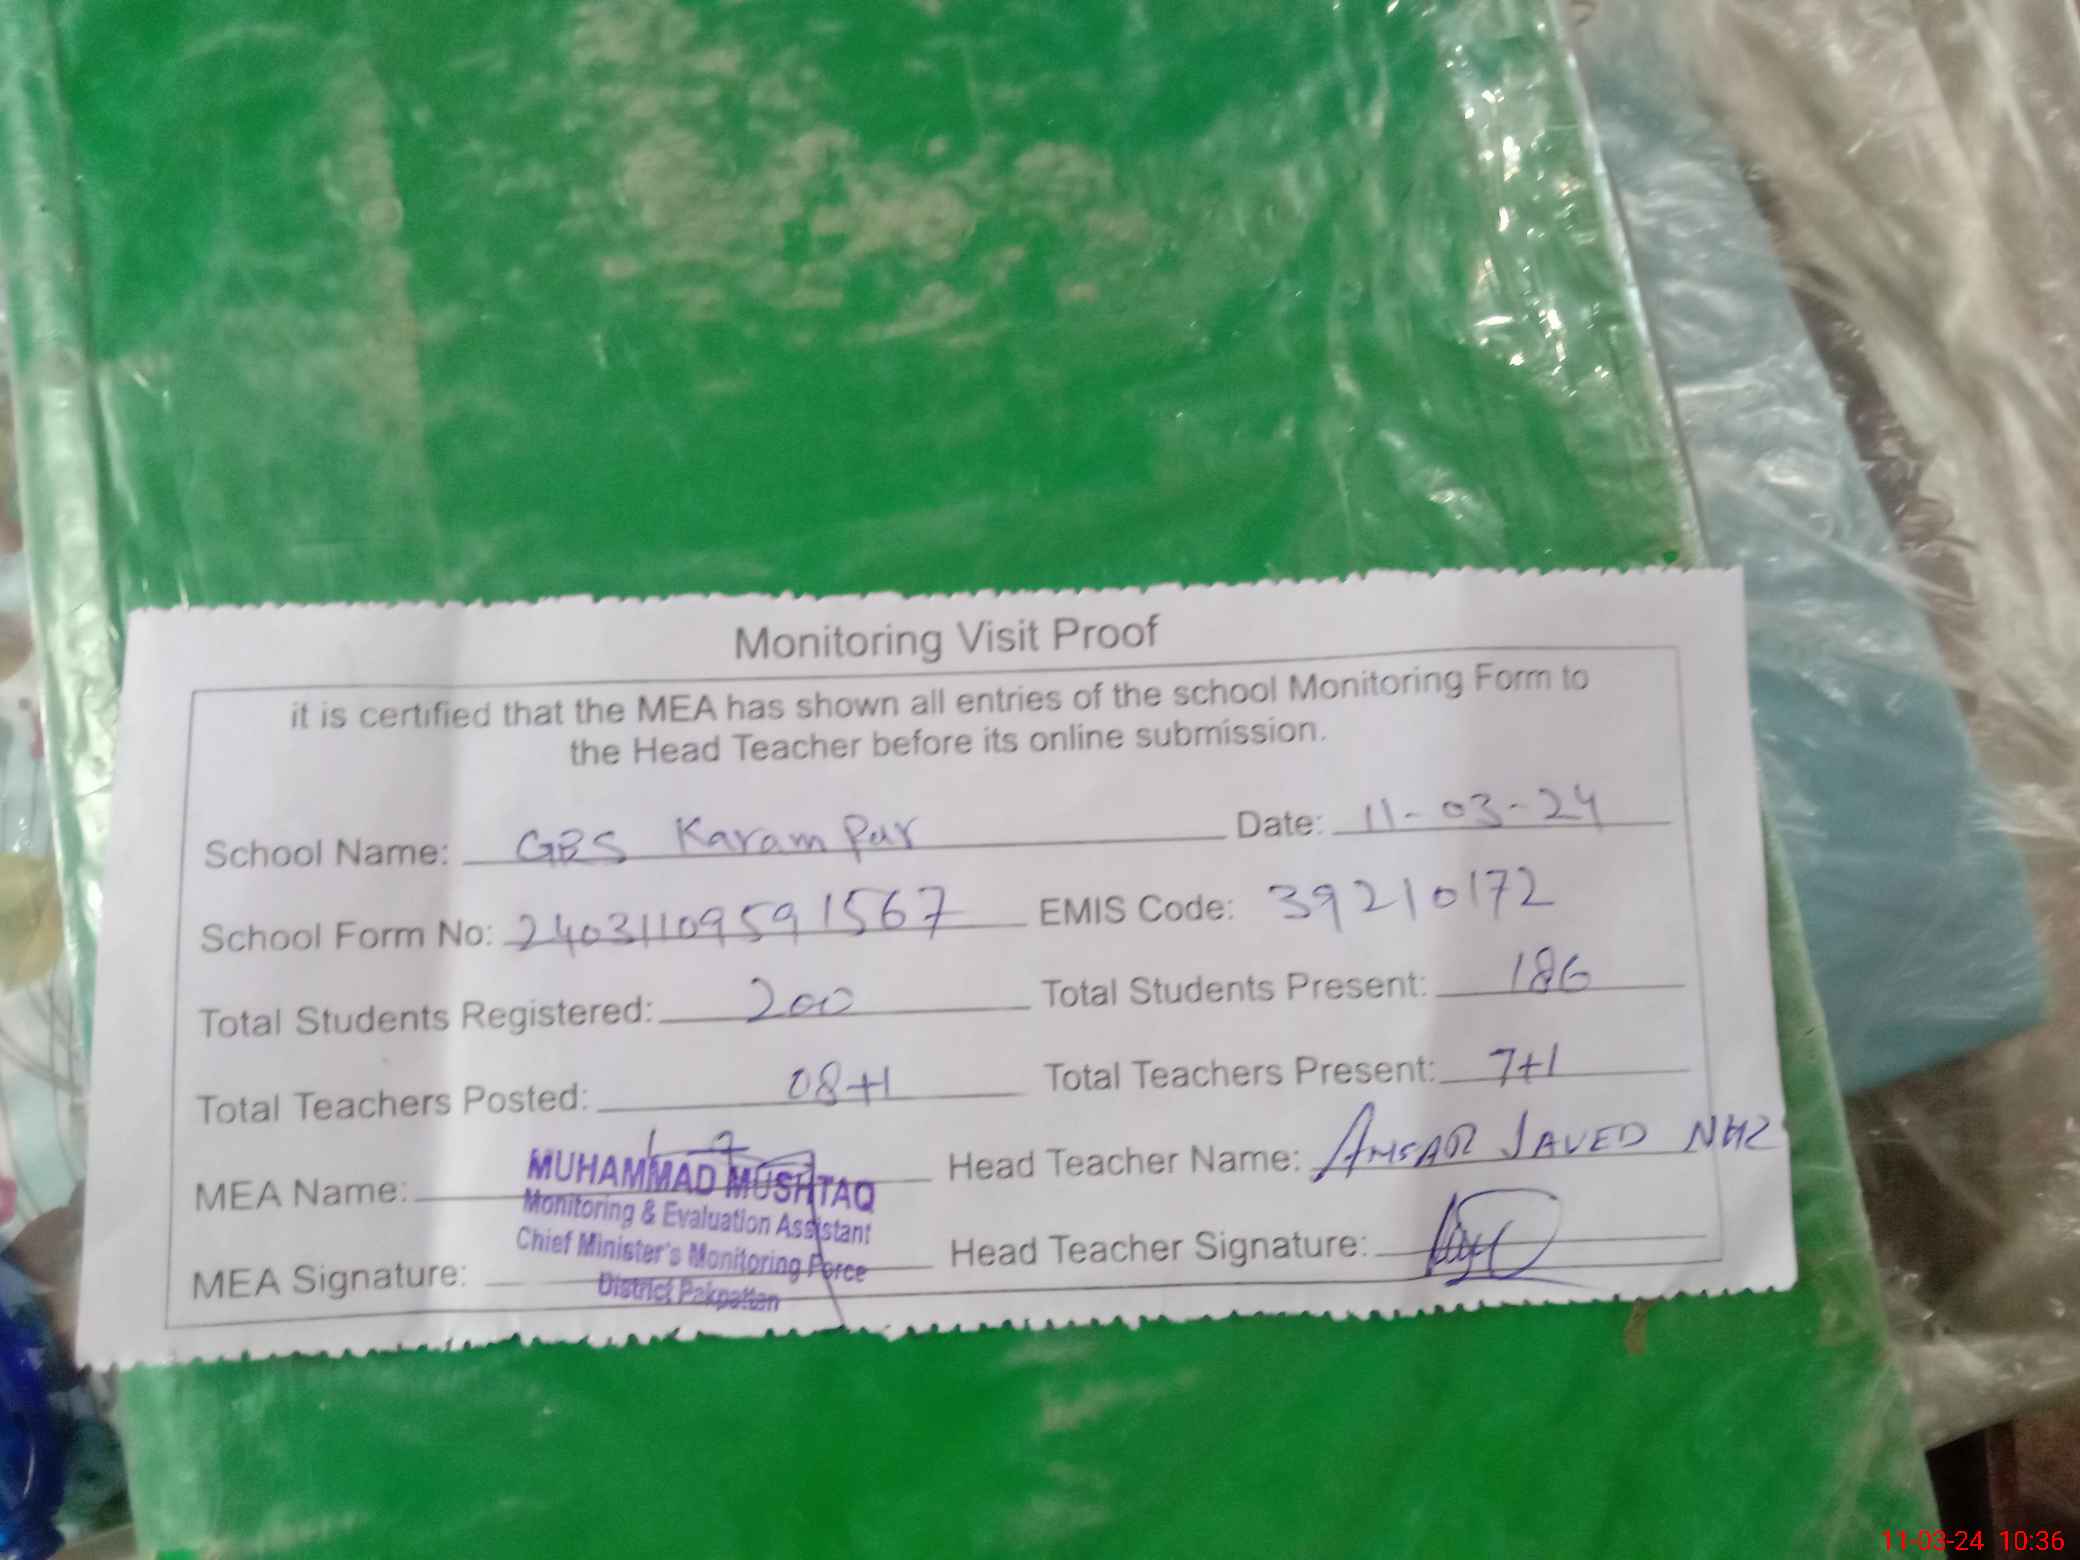 Monitoring Visit Proof
it is certified that the MEA has shown all entries of the school Monitoring Form to
the Head Teacher before its online submission.
School Name: GBS Karam Pur Date: 11-03-24
School Form No: 24031109591567 EMIS Code: 39210172
Total Students Registered: 200 Total Students Present: 186
Total Teachers Posted: 08+1 Total Teachers Present: 7+1
MEA Name: MUHAMMAD MUSHTAQ Head Teacher Name: JAVED
Monitoring & Evaluation Assistant
Chief Minister's Monitoring Force
MEA Signature: Head Teacher Signature:
District Pakpattan
11-03-24 10:36